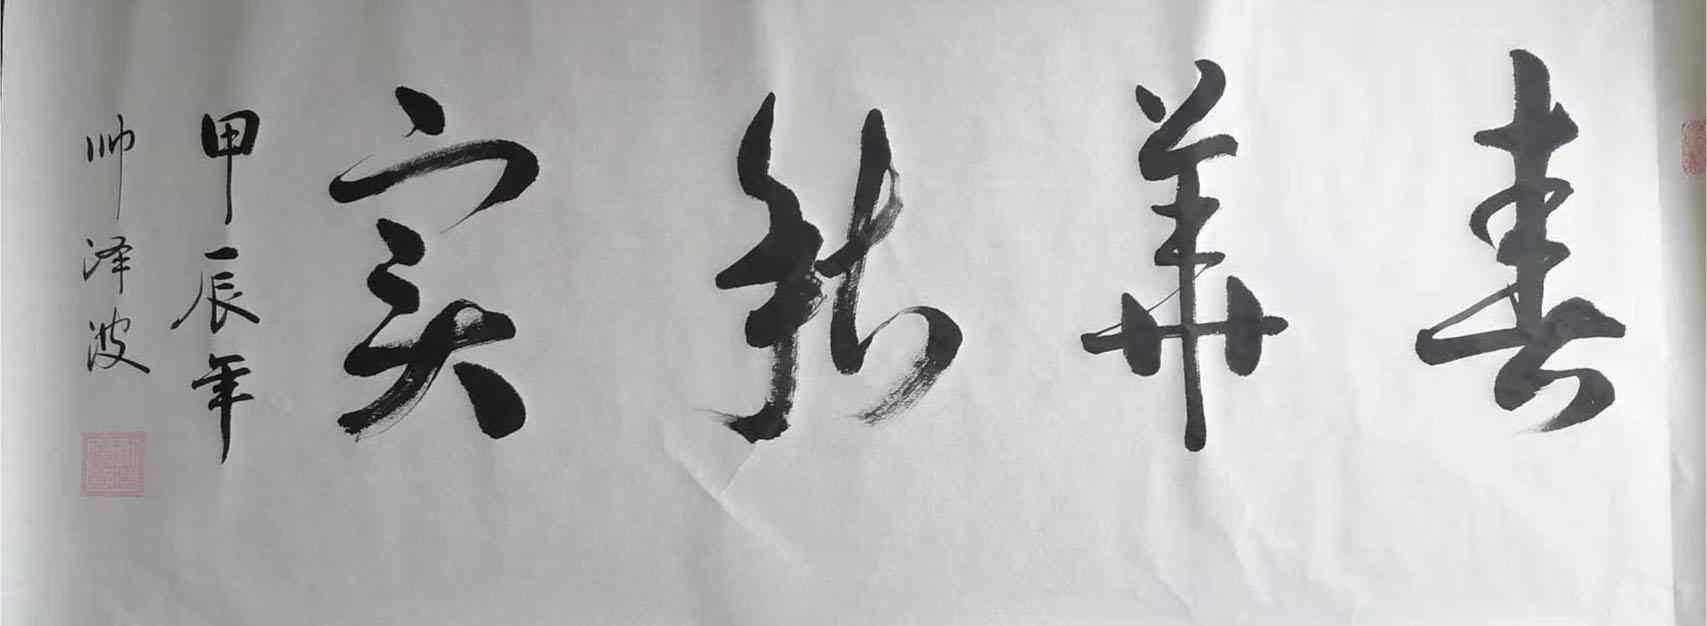 春華秋实
甲辰年
帅泽波